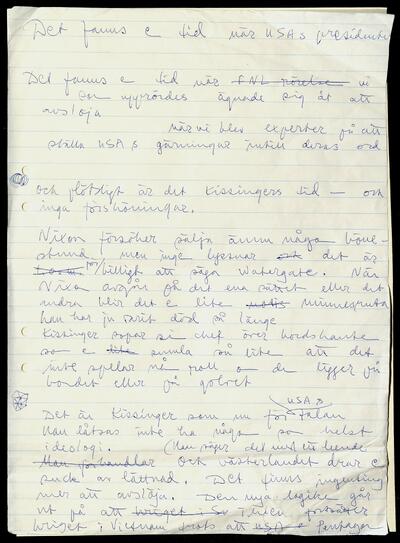 Det fanns e tid när USAs presidenter
Det fanns e tid när FNL rörelse vi
som upprördes ägnade sig åt att
avslöja
när vi blev experter på att
ställa USAs gärningar intill deras ord
och plötsligt är det Kissingers tid – och
inga försköningar.
Nixon försöker sälja ännu några böne-
stunder men inge lyssnar det är
för billigt att säga Watergate. När
Nixon avgår på det ena sättet eller det
andra blir det e lite minnesruta
han har ju varit död så länge
Kissinger sopar si chef över bordskante
som e smula så lite att det
inte spelar nån roll om den ligger på
bordet eller på golvet
USAs
Det är Kissinger som nu för talan
Han låtsas inte ha några som helst
ideologi. (Han säger det med ett leende
Han förhandlar Och västerlandet drar e
suck av lättnad. Det finns ingenting
mer att avslöja. Den nya logiken går
ut på att kriget i Sv Thieu fortsätter
kriget i Vietnam trots att USA Pentagon